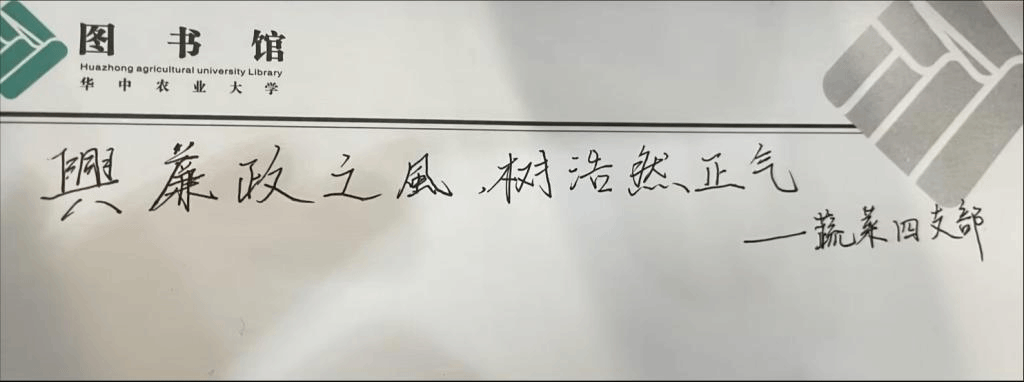 图书馆
Huazhong agricultural university Library
华中农业大学
興廉政之風,树浩然正气
——蔬菜四支部